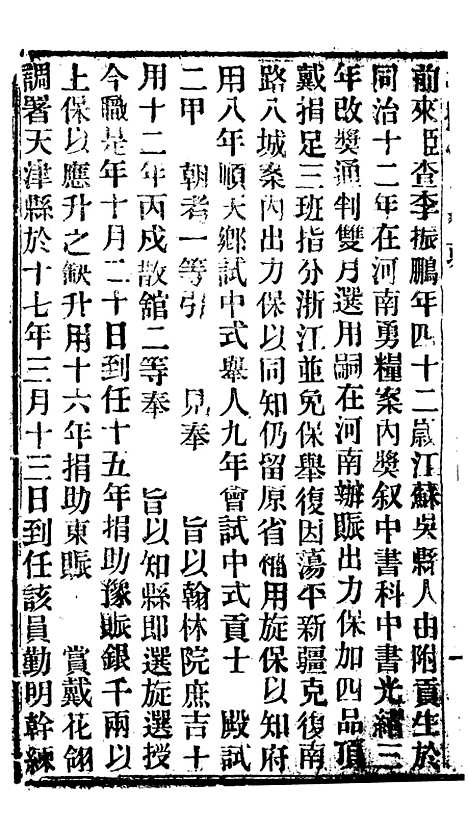 前來臣查李振鵬年四十二歲江蘇吳縣人由附貢生於
同治十二年在河南勇糧案內獎敘中書科中書光緒三
年改獎通判雙月選用嗣在河南辦賑出力保加四品頂
戴捐足三班指分浙江並免保舉復因蕩平新疆克復南
路八城案內出力保以同知仍留原省補用旋保以知府
用八年順天鄉試中式舉人九年會試中式貢士　殿試
二甲　朝考一等引　見奉　旨以翰林院庶吉士
用十二年丙戌散舘二等奉　旨以知縣即選旋選授
今職是年十月二十日到任十五年捐助豫賑銀千兩以
上保以應升之缺升用十六年捐助東賑　賞戴花翎
調署天津縣於十七年三月十三日到任該員勤明幹練